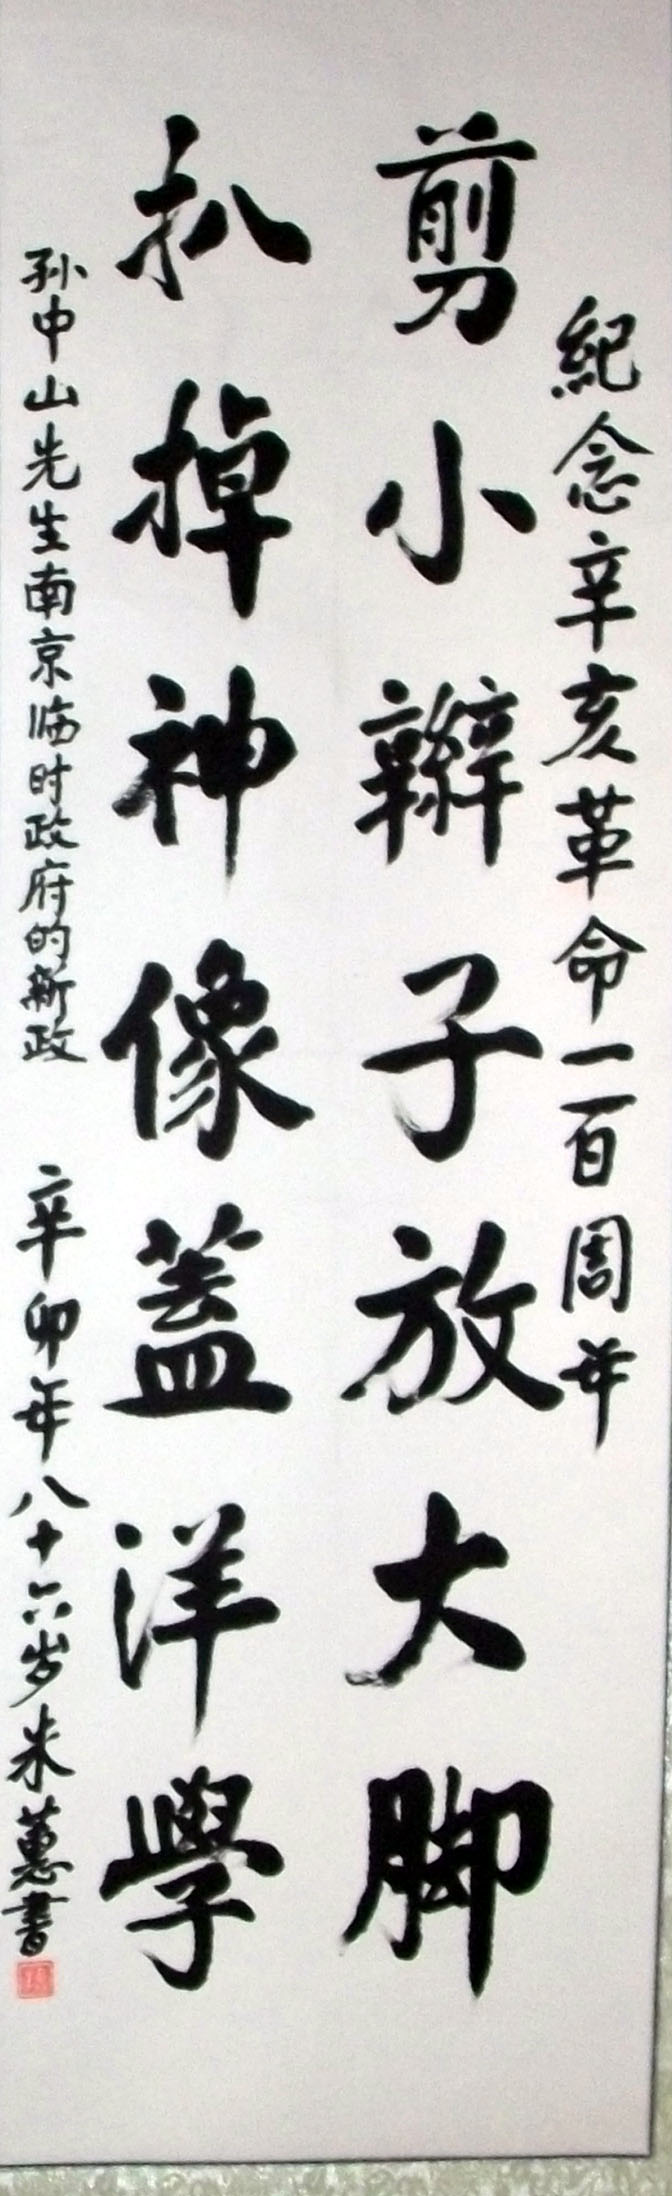 紀念辛亥革命一百周年
剪小辮子放大脚
扒掉神像蓋洋學
孙中山先生南京临时政府的新政
辛卯年八十六岁朱蕙書